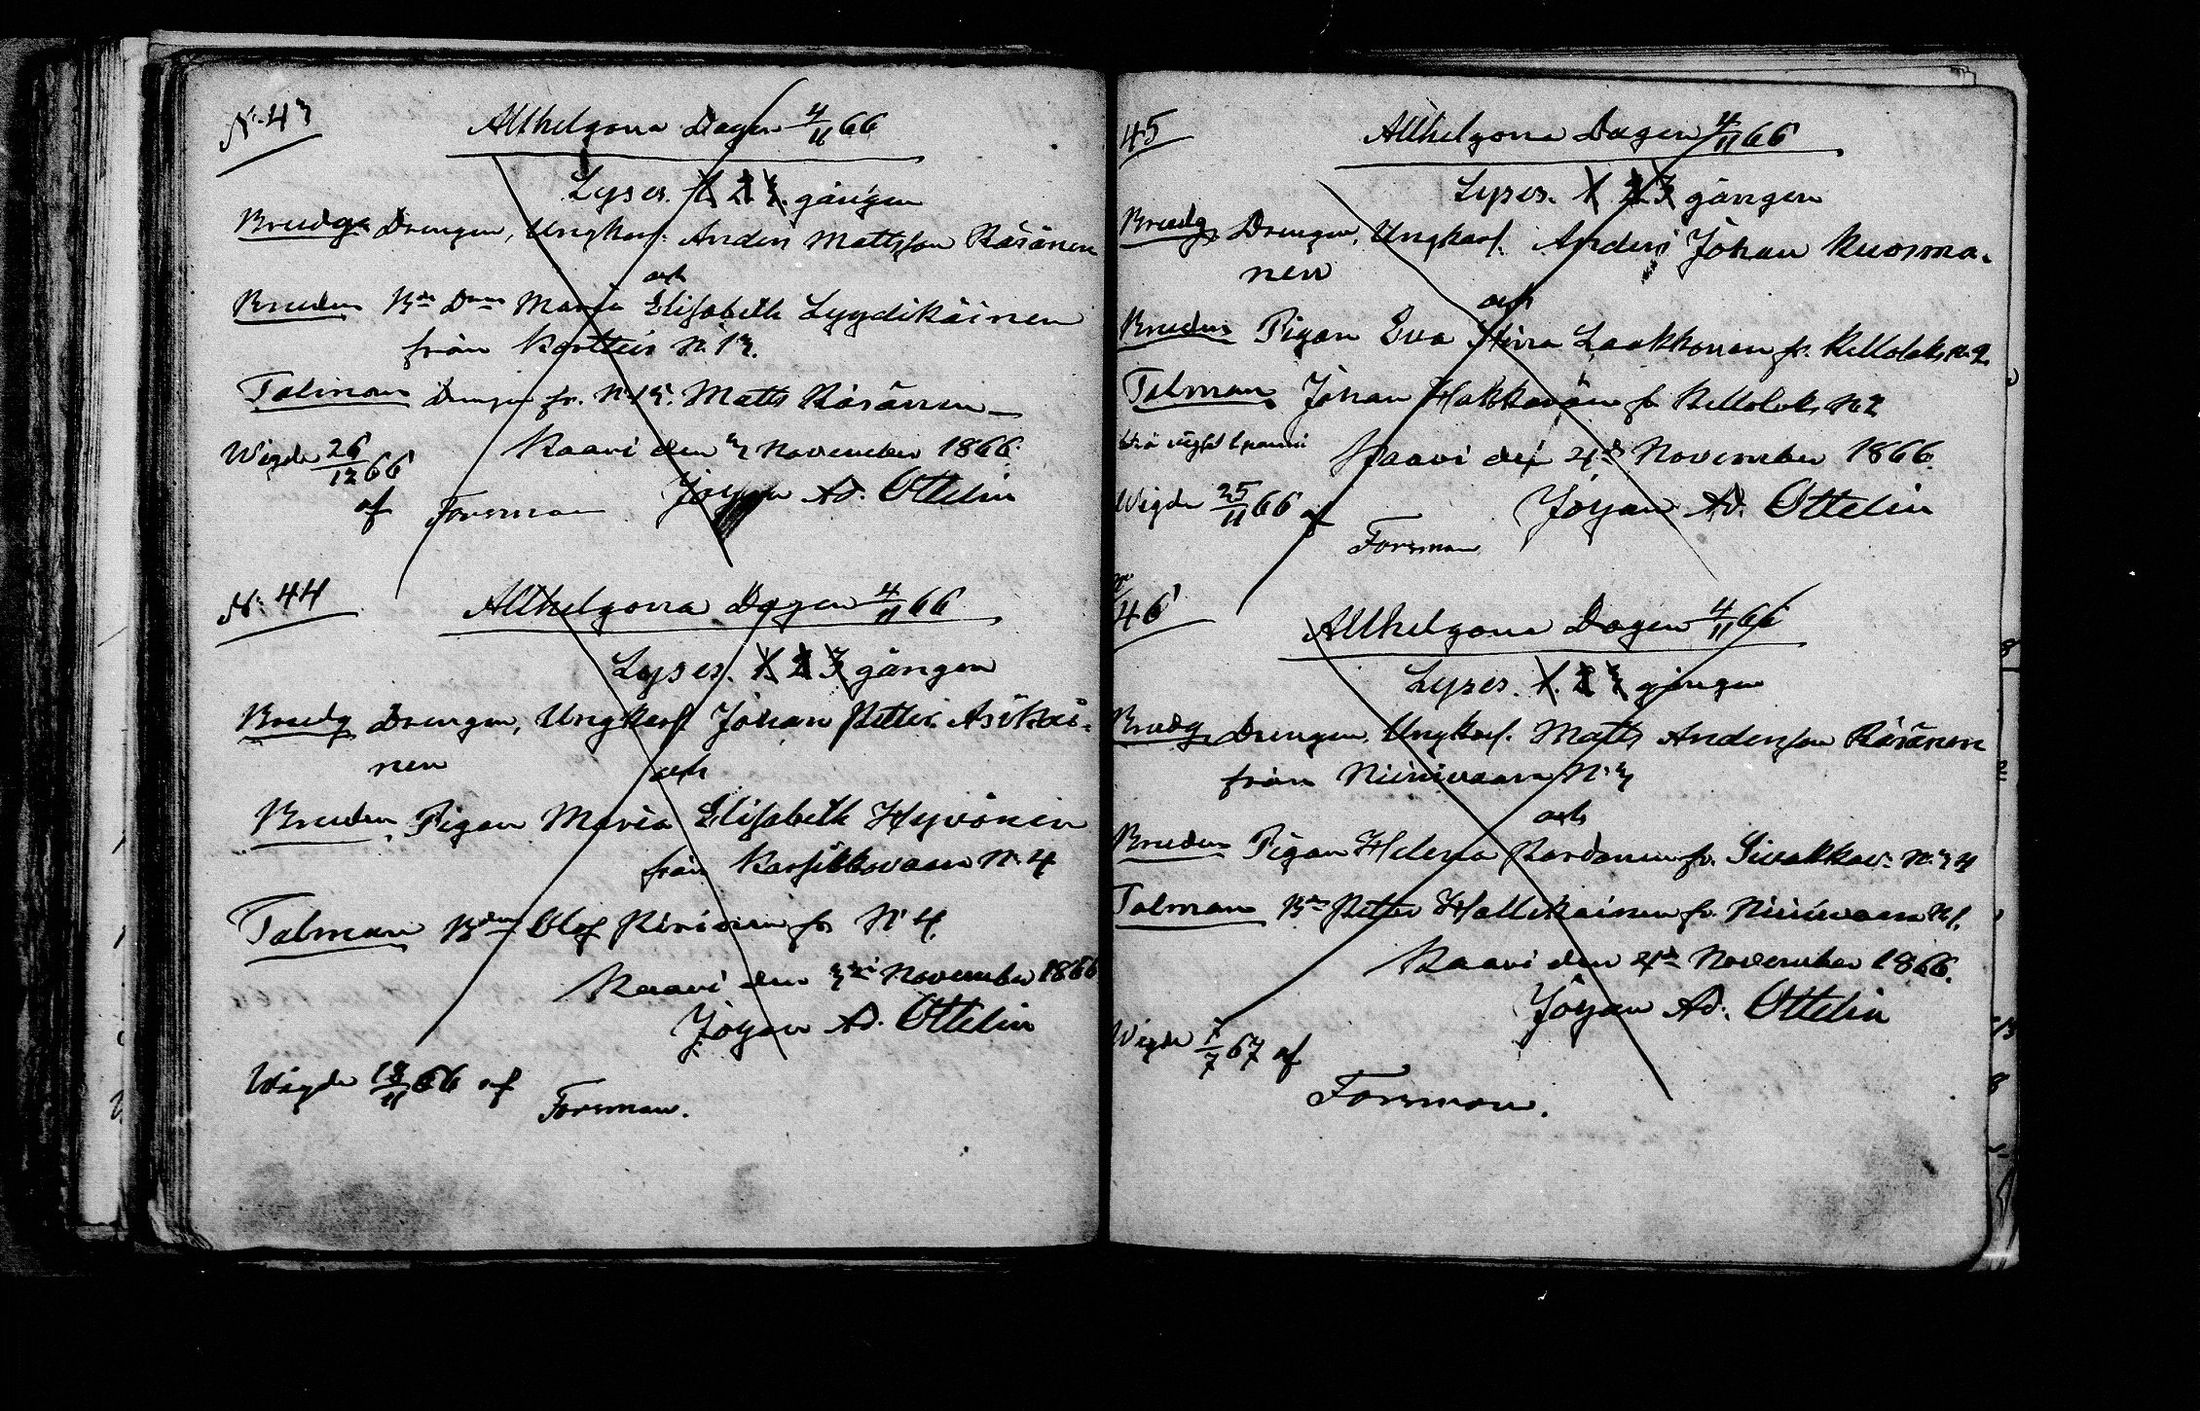 N. 43
Allhelgona Dagen 4/11 66
Lyses. 1 2 3. gången
Brudg. Drengen, Ungkarl. Anders Mattsson Räsänen
och
Bruden Bde Dren Maria Elisabeth Lyydikäinen
från Kortteis N. 13.
Talman Drengen fr. N. 13. Matts Räsänen
Kaavi den 3 November 1866.
Wigde 26/12 66
Jöran Ad. Ottelin
af Forsman
N. 44
Allhelgona Dagen 4/11 66
Lyses. 1 2 3 gången
Brudg Drengen, Ungkarl Johan Petter Asikai-
nen
och
Bruden Pigan Maria Elisabeth Hyvönen
från Karsikkovaara N. 4
Talman Bden Olof fr N 4.
Kaavi den November 1866
Jöran Ad. Ottelin
Wigde 18/11 66 af
Forsman.
45
Allhelgona Dagen 4/11 66
Lyses. 1 2 3 gången
Brudg. Drengen, Ungkarl. Anders Johan Kuosma-
nen
och
Bruden Pigan Eva Stina Laakkonen fr. Kellolaks N. 2
Talman Johan fr Kellolaks N. 2
Kaavi den 4de November 1866.
Wigde 25/11 66 af
Jöran Ad. Ottelin
Forsman
46
Allhelgona Dagen 4/11 66
Lyses. 1. 2 3 gången
Brudg. Drengen, Ungkarl. Matts Andersson Räsänen
från Niinivaara N. 3
och
Bruden Pigan Helena fr. Sivakkav. N. 34
Talman Bden Petter Hallikainen fr. Niinivaara N 1.
Kaavi den 4de November 1866.
Jöran Ad. Ottelin
Wigde 1/7 67 af
Forsman.